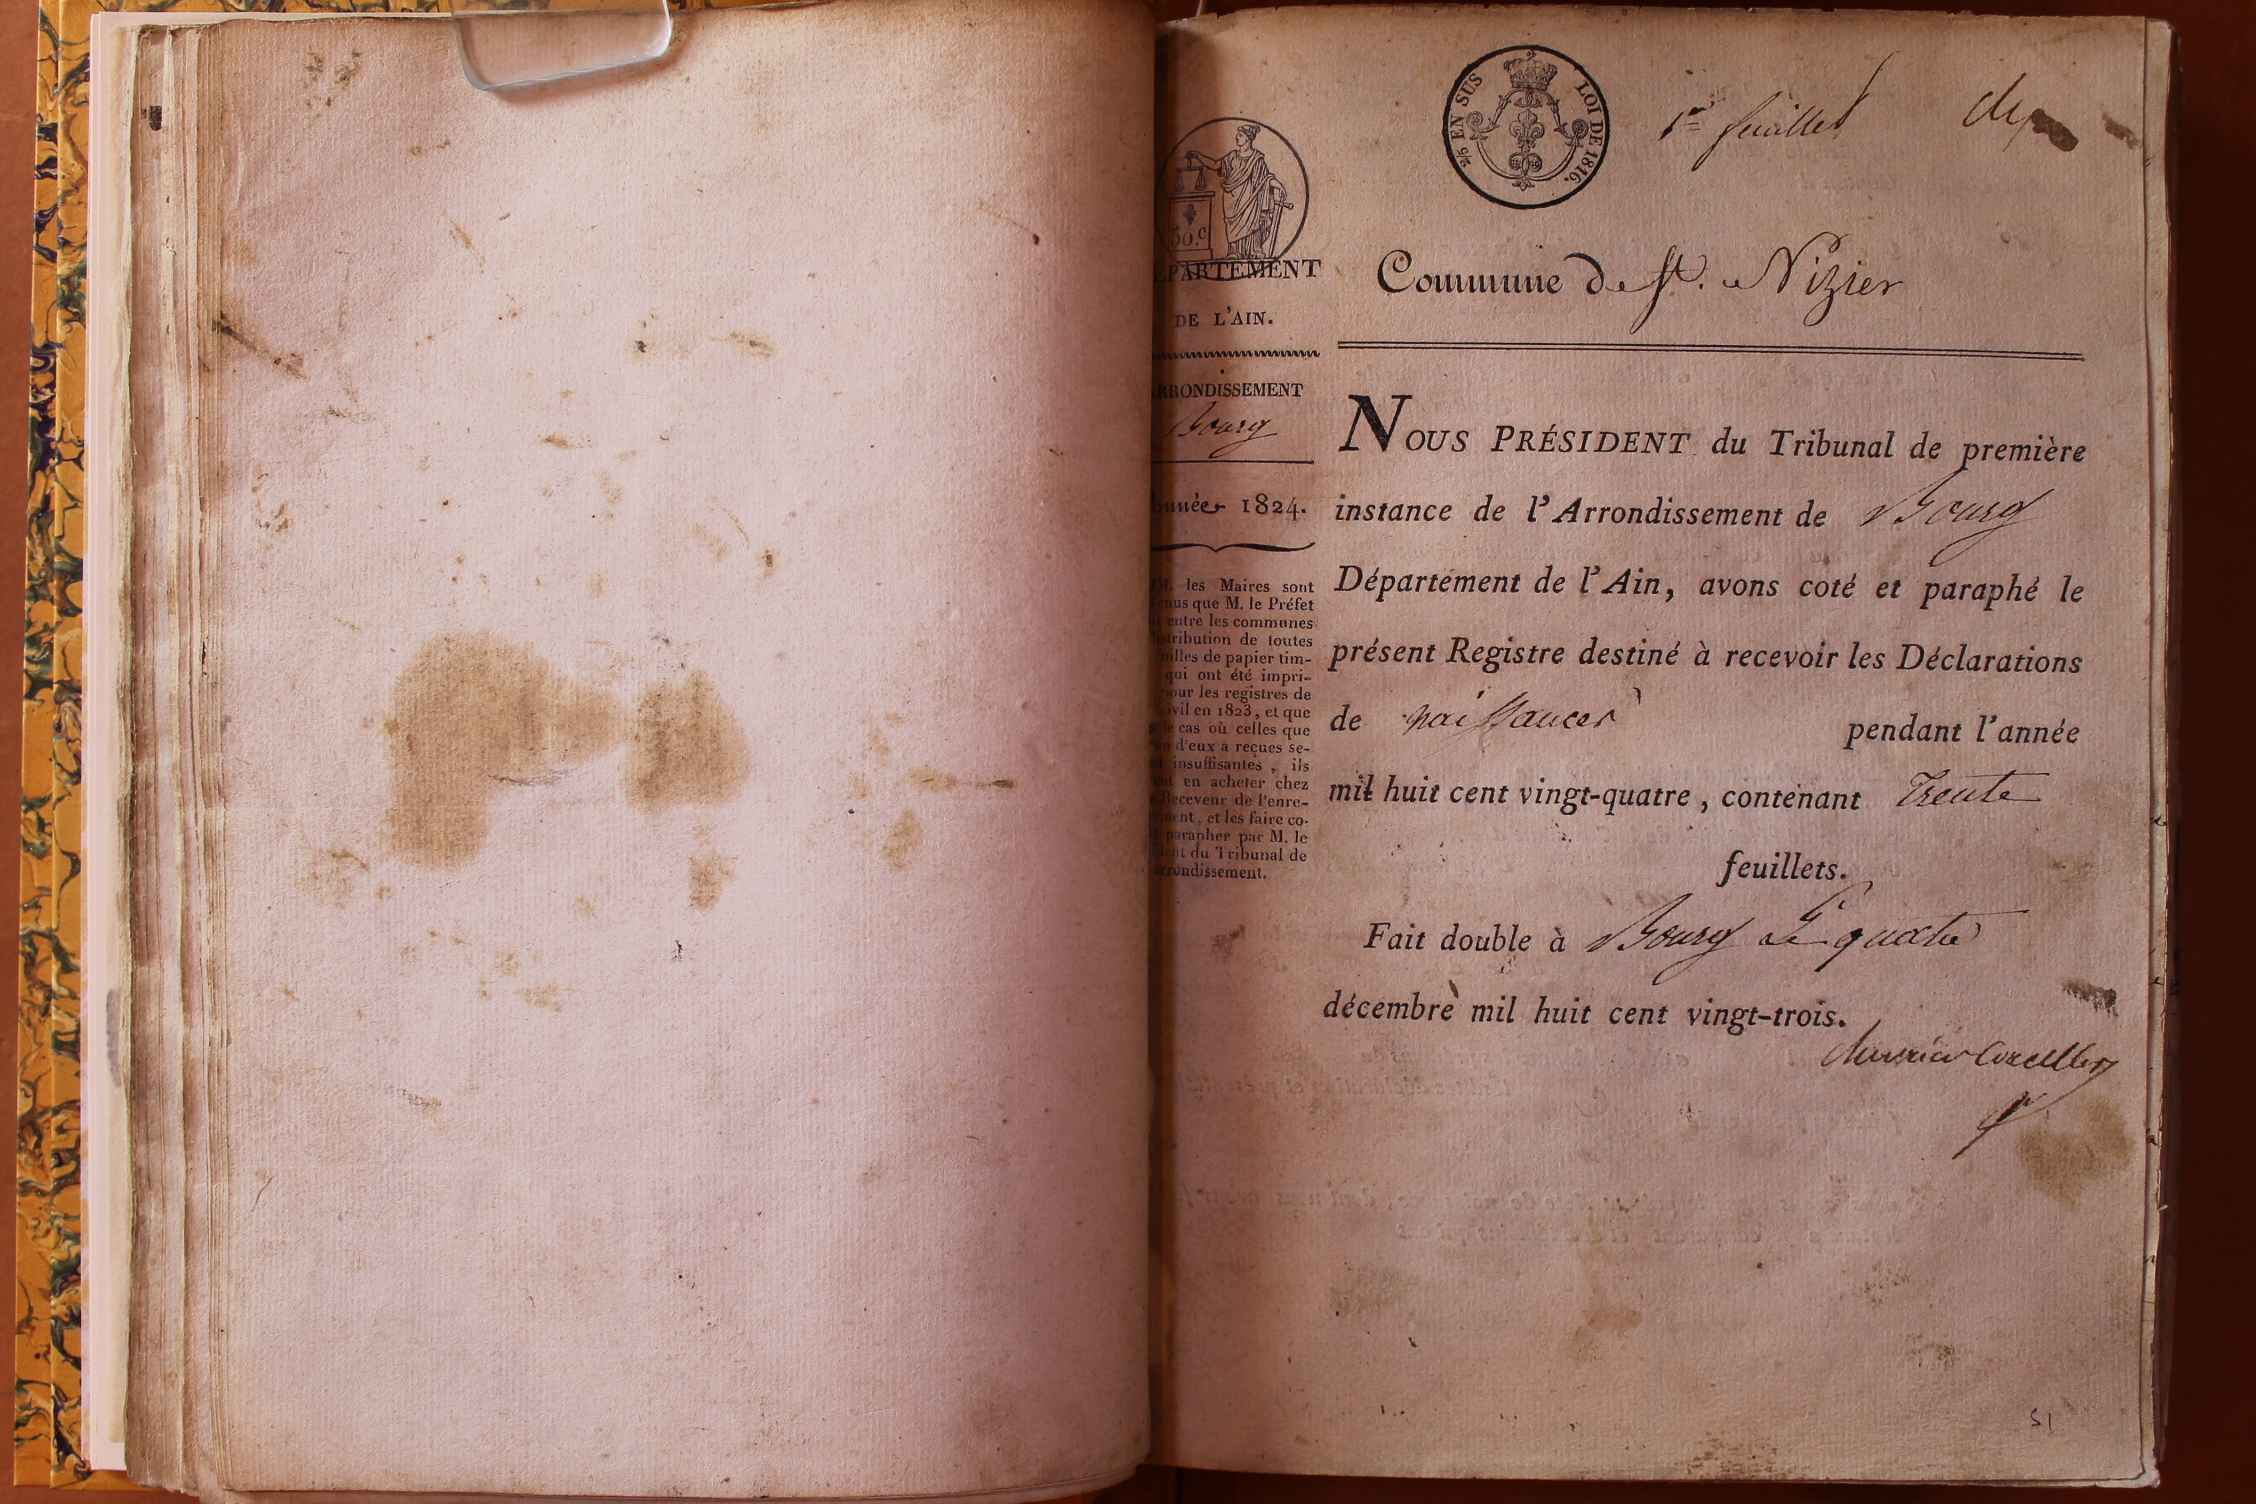 2/5 EN SUS LOI DE 1816.
1er feuillet
50.c
DÉPARTEMENT
DE L'AIN.
ARRONDISSEMENT
Bourg
Année 1824.
MM. les Maires sont
que M. le Préfet
entre les communes
distribution de toutes
feuilles de papier tim-
qui ont été impri-
pour les registres de
civil en 1823, et que
le cas où celles que
d'eux a reçues se-
insuffisantes, ils
en acheter chez
Receveur de l'enre-
et les faire co-
parapher par M. le
du Tribunal de
arrondissement.
Commune de St. Nizier
NOUS PRÉSIDENT du Tribunal de première
instance de l'Arrondissement de Bourg
Département de l'Ain, avons coté et paraphé le
présent Registre destiné à recevoir les Déclarations
de naissances pendant l'année
mil huit cent vingt-quatre, contenant Trente
feuillets.
Fait double à Bourg Le quatre
décembre mil huit cent vingt-trois.
51